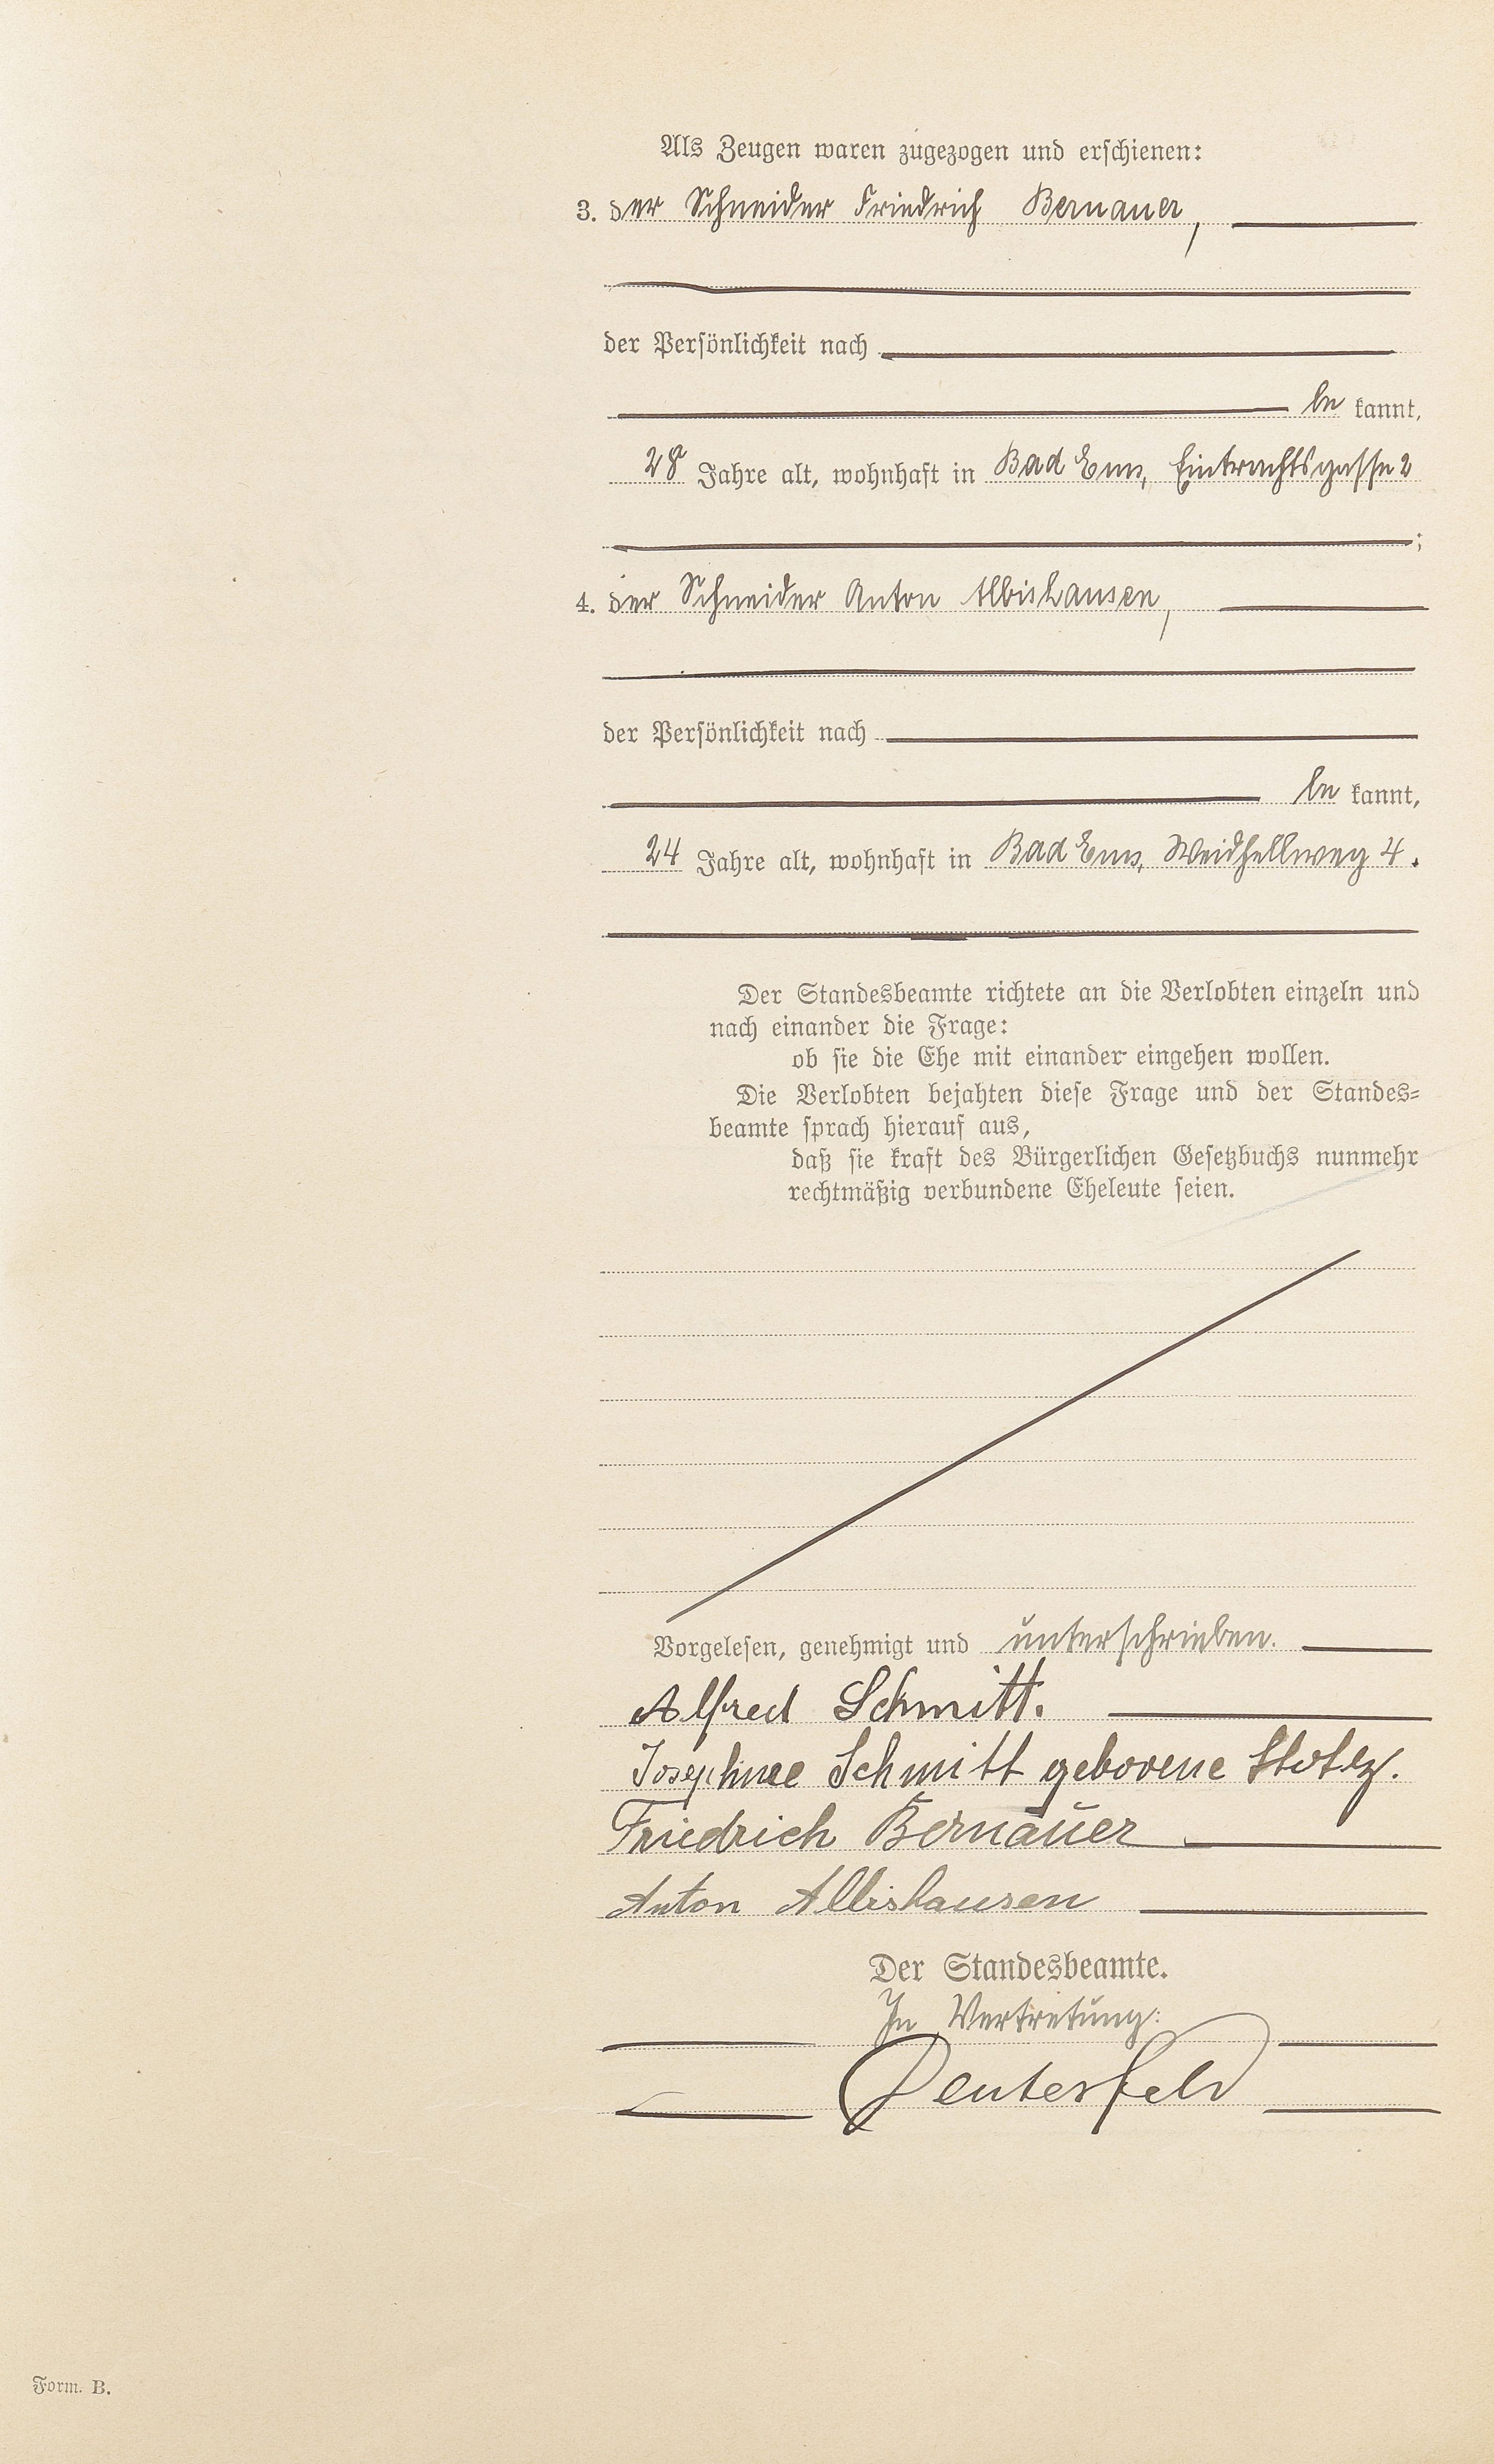 Als Zeugen waren zugezogen und erschienen:
3. der Schneider Friedrich Bernauer,
der Persönlichkeit nach
be kannt,
28 Jahre alt, wohnhaft in Bad Ems, Eintrachtsgasse 2
;
4. der Schneider Anton Albishausen,
der Persönlichkeit nach
be kannt,
24 Jahre alt, wohnhaft in Bad Ems, Weidhellweg 4.
Der Standesbeamte richtete an die Verlobten einzeln und
nach einander die Frage:
ob sie die Ehe mit einander eingehen wollen.
Die Verlobten bejahten diese Frage und der Standes-
beamte sprach hierauf aus,
daß sie kraft des Bürgerlichen Gesetzbuchs nunmehr
rechtmäßig verbundene Eheleute seien.
Vorgelesen, genehmigt und unterschrieben.
Alfred Schmitt.
Josephine Schmitt geborene Stotz.
Friedrich Bernauer
Anton Albishausen
Der Standesbeamte.
In Vertretung:
Deutesfeld
Form. B.